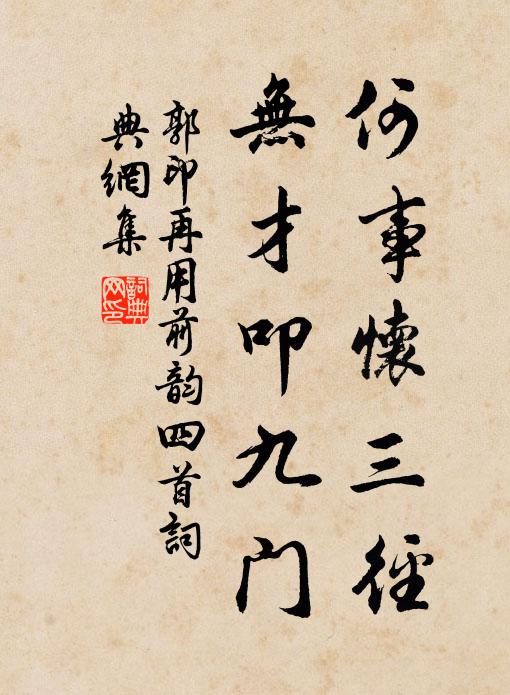 何事懷三徑
無才叩九门
郭印再用前韵四首詞
典網集
詞典
网印